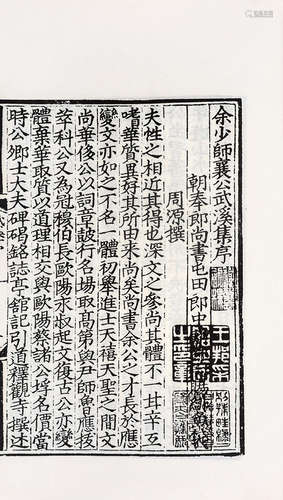 余少師襄公武溪集序
朝奉郎尚書屯田郎中
周源撰
夫性之相近其得也深文之爹尚其體不一其辛互
嗜華質異好其所由来尚矣尚書余公之才長於應
變文亦如之不名一體初舉進士天禧天聖之間文
尚華侈公以詞章敲行名場取髙第與尹師魯應技
萃科公又為冠穆伯長歐陽永叔起文復古公亦變
體棄華取質以道理相交與歐陽蔡諸公埒名價當
時公卿士大夫碑碣銘誌亭館記引道釋觀寺撰述